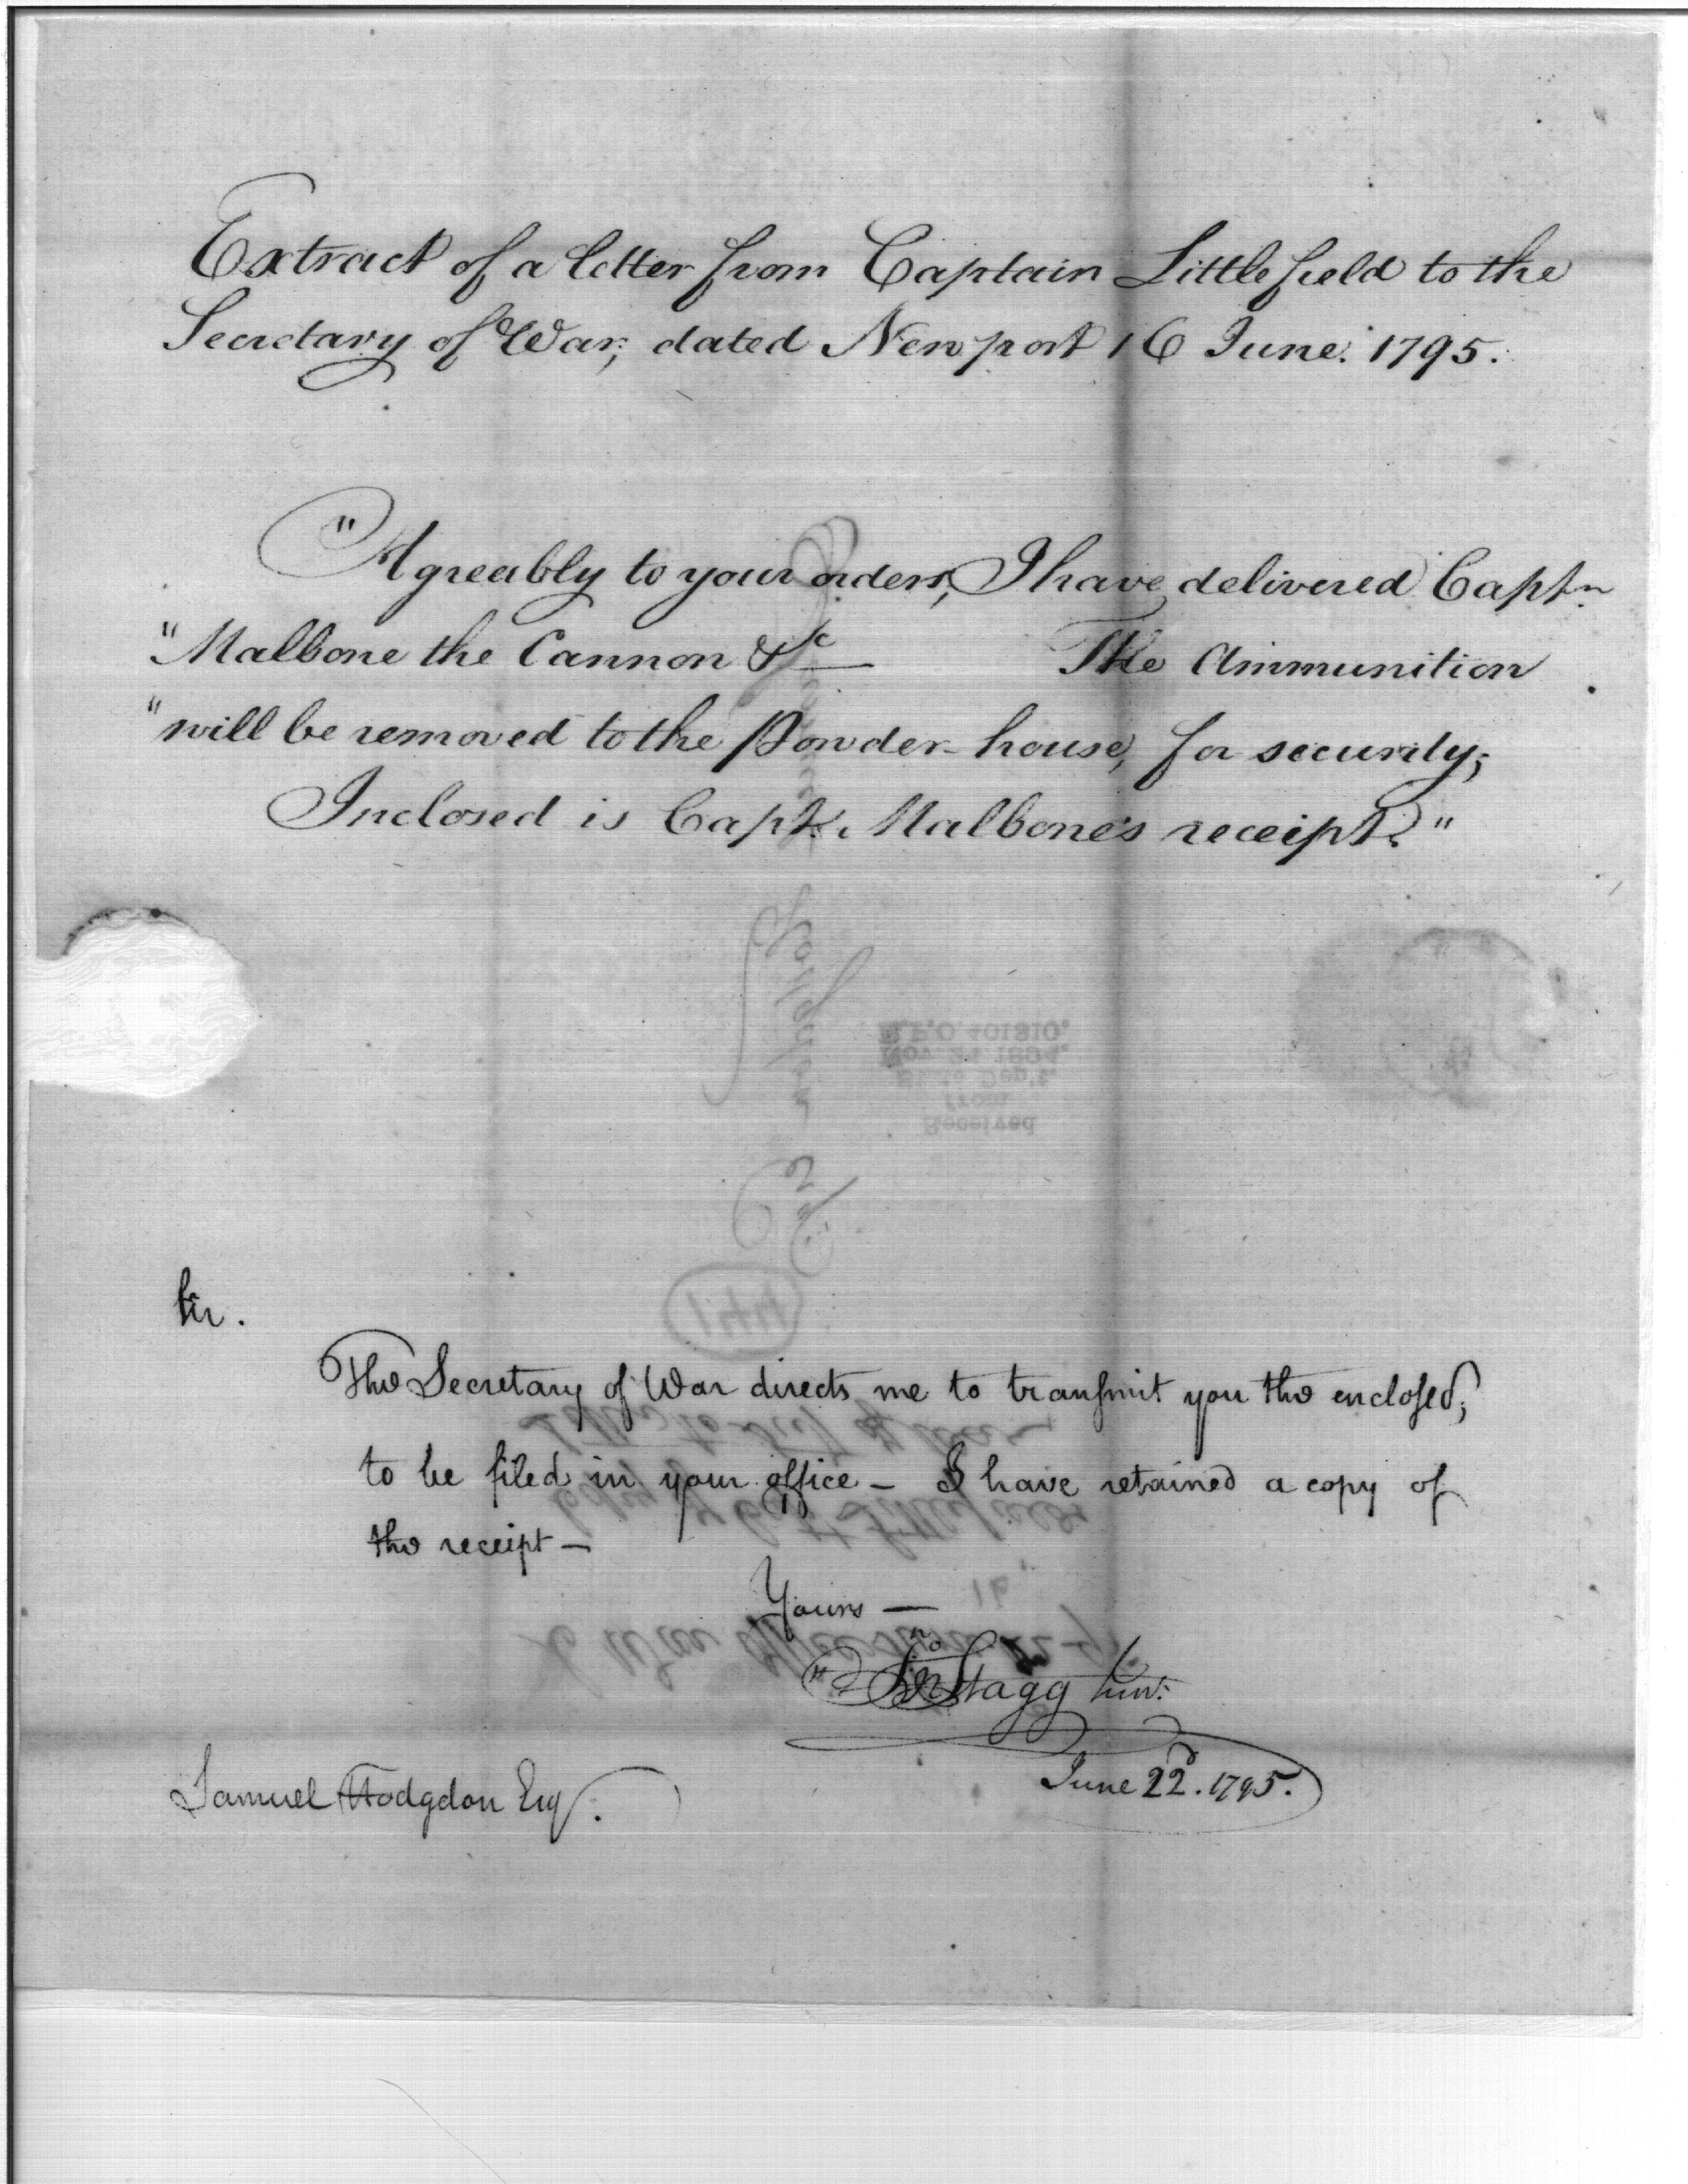 Extract of a letter from Captain Littlefield to the
Secretary of War, dated Newport 16 June. 1795.
"Agreeably to your orders, I have delivered Captn.
"Malbone the Cannon &c— The Ammunition
"will be removed to the Powder-house, for security;
Inclosed is Capt. Malbone's receipt."
Received
from
Dep't.
Nov. 21 1894.
R.P.O. 401810.
144
Sir.
The Secretary of War directs me to transmit you the enclosed,
to be filed in your office— I have retained a copy of
the receipt—
Yours—
Jno Stagg Junr.
June 22d. 1795.
Samuel Hodgdon Esq.